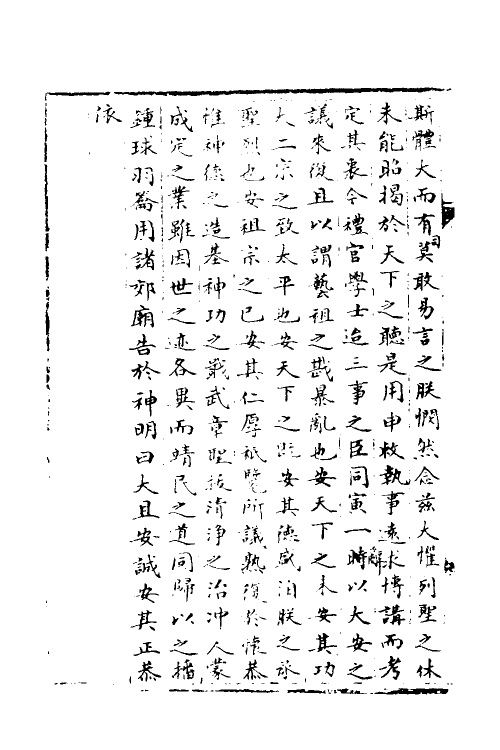 斯體大而有司莫敢易言之朕憫然念茲大懼列聖之休
未能昭揭於天下之聽是用申敕執事遠求博講而考
定其衷今禮官學士迨三事之臣同寅一辭以大安之
議來復且以謂藝祖之戡暴亂也安天下之未安其功
大二宗之致太平也安天下之既安其德盛洎朕之承
聖烈也安祖宗之已安其仁厚祗覽所議熟復於懷恭
惟神德之造基神功之戢武章聖披清淨之治冲人蒙
成定之業雖因世之迹各異而靖民之道同歸以之播
鍾球羽籥用諸郊廟告於神明曰大且安誠安其正恭
依